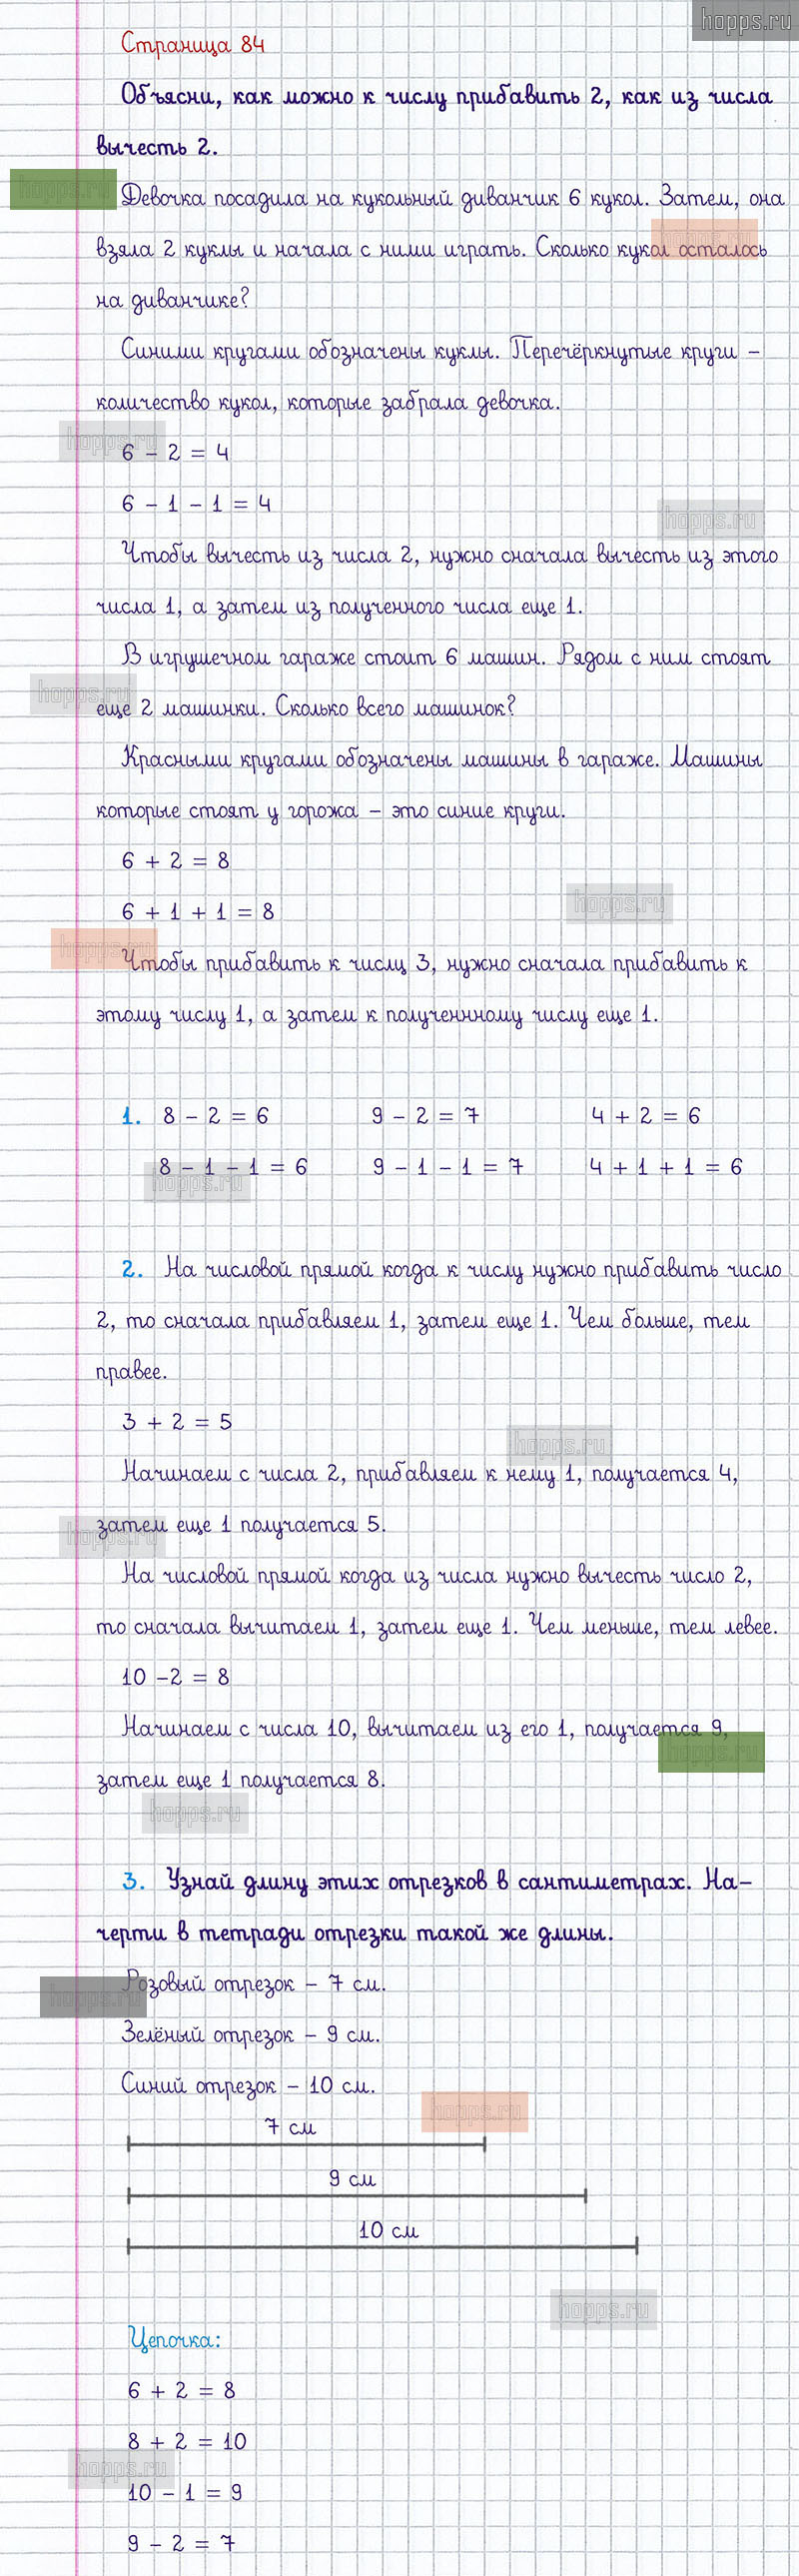 hopps.ru
Страница 84
Объясни, как можно к числу прибавить 2, как из числа
вычесть 2.
hopps.ru
Девочка посадила на кукольный диванчик 6 кукол. Затем, она
hopps.ru
взяла 2 куклы и начала с ними играть. Сколько кукол осталось
на диванчике?
Синими кругами обозначены куклы. Перечёркнутые круги –
количество кукол, которые забрала девочка.
hopps.ru
6 – 2 = 4
6 – 1 – 1 = 4
hopps.ru
Чтобы вычесть из числа 2, нужно сначала вычесть из этого
числа 1, а затем из полученного числа еще 1.
В игрушечном гараже стоит 6 машин. Рядом с ним стоят
hopps.ru
еще 2 машинки. Сколько всего машинок?
Красными кругами обозначены машины в гараже. Машины
которые стоят у горожа – это синие круги.
6 + 2 = 8
hopps.ru
6 + 1 + 1 = 8
hopps.ru
Чтобы прибавить к числу 3, нужно сначала прибавить к
этому числу 1, а затем к полученнному числу еще 1.
1. 8 – 2 = 6 9 – 2 = 7 4 + 2 = 6
8 – 1 – 1 = 6 9 – 1 – 1 = 7 4 + 1 + 1 = 6
hopps.ru
2. На числовой прямой когда к числу нужно прибавить число
2, то сначала прибавляем 1, затем еще 1. Чем больше, тем
правее.
3 + 2 = 5
hopps.ru
Начинаем с числа 2, прибавляем к нему 1, получается 4,
затем еще 1 получается 5.
hopps.ru
На числовой прямой когда из числа нужно вычесть число 2,
то сначала вычитаем 1, затем еще 1. Чем меньше, тем левее.
10 –2 = 8
Начинаем с числа 10, вычитаем из его 1, получается 9,
hopps.ru
затем еще 1 получается 8.
hopps.ru
3. Узнай длину этих отрезков в сантиметрах. На–
черти в тетради отрезки такой же длины.
Розовый отрезок – 7 см.
hopps.ru
Зелёный отрезок – 9 см.
Синий отрезок – 10 см.
hopps.ru
7 см
9 см
10 см
hopps.ru
Цепочка:
6 + 2 = 8
8 + 2 = 10
hopps.ru
10 – 1 = 9
9 – 2 = 7